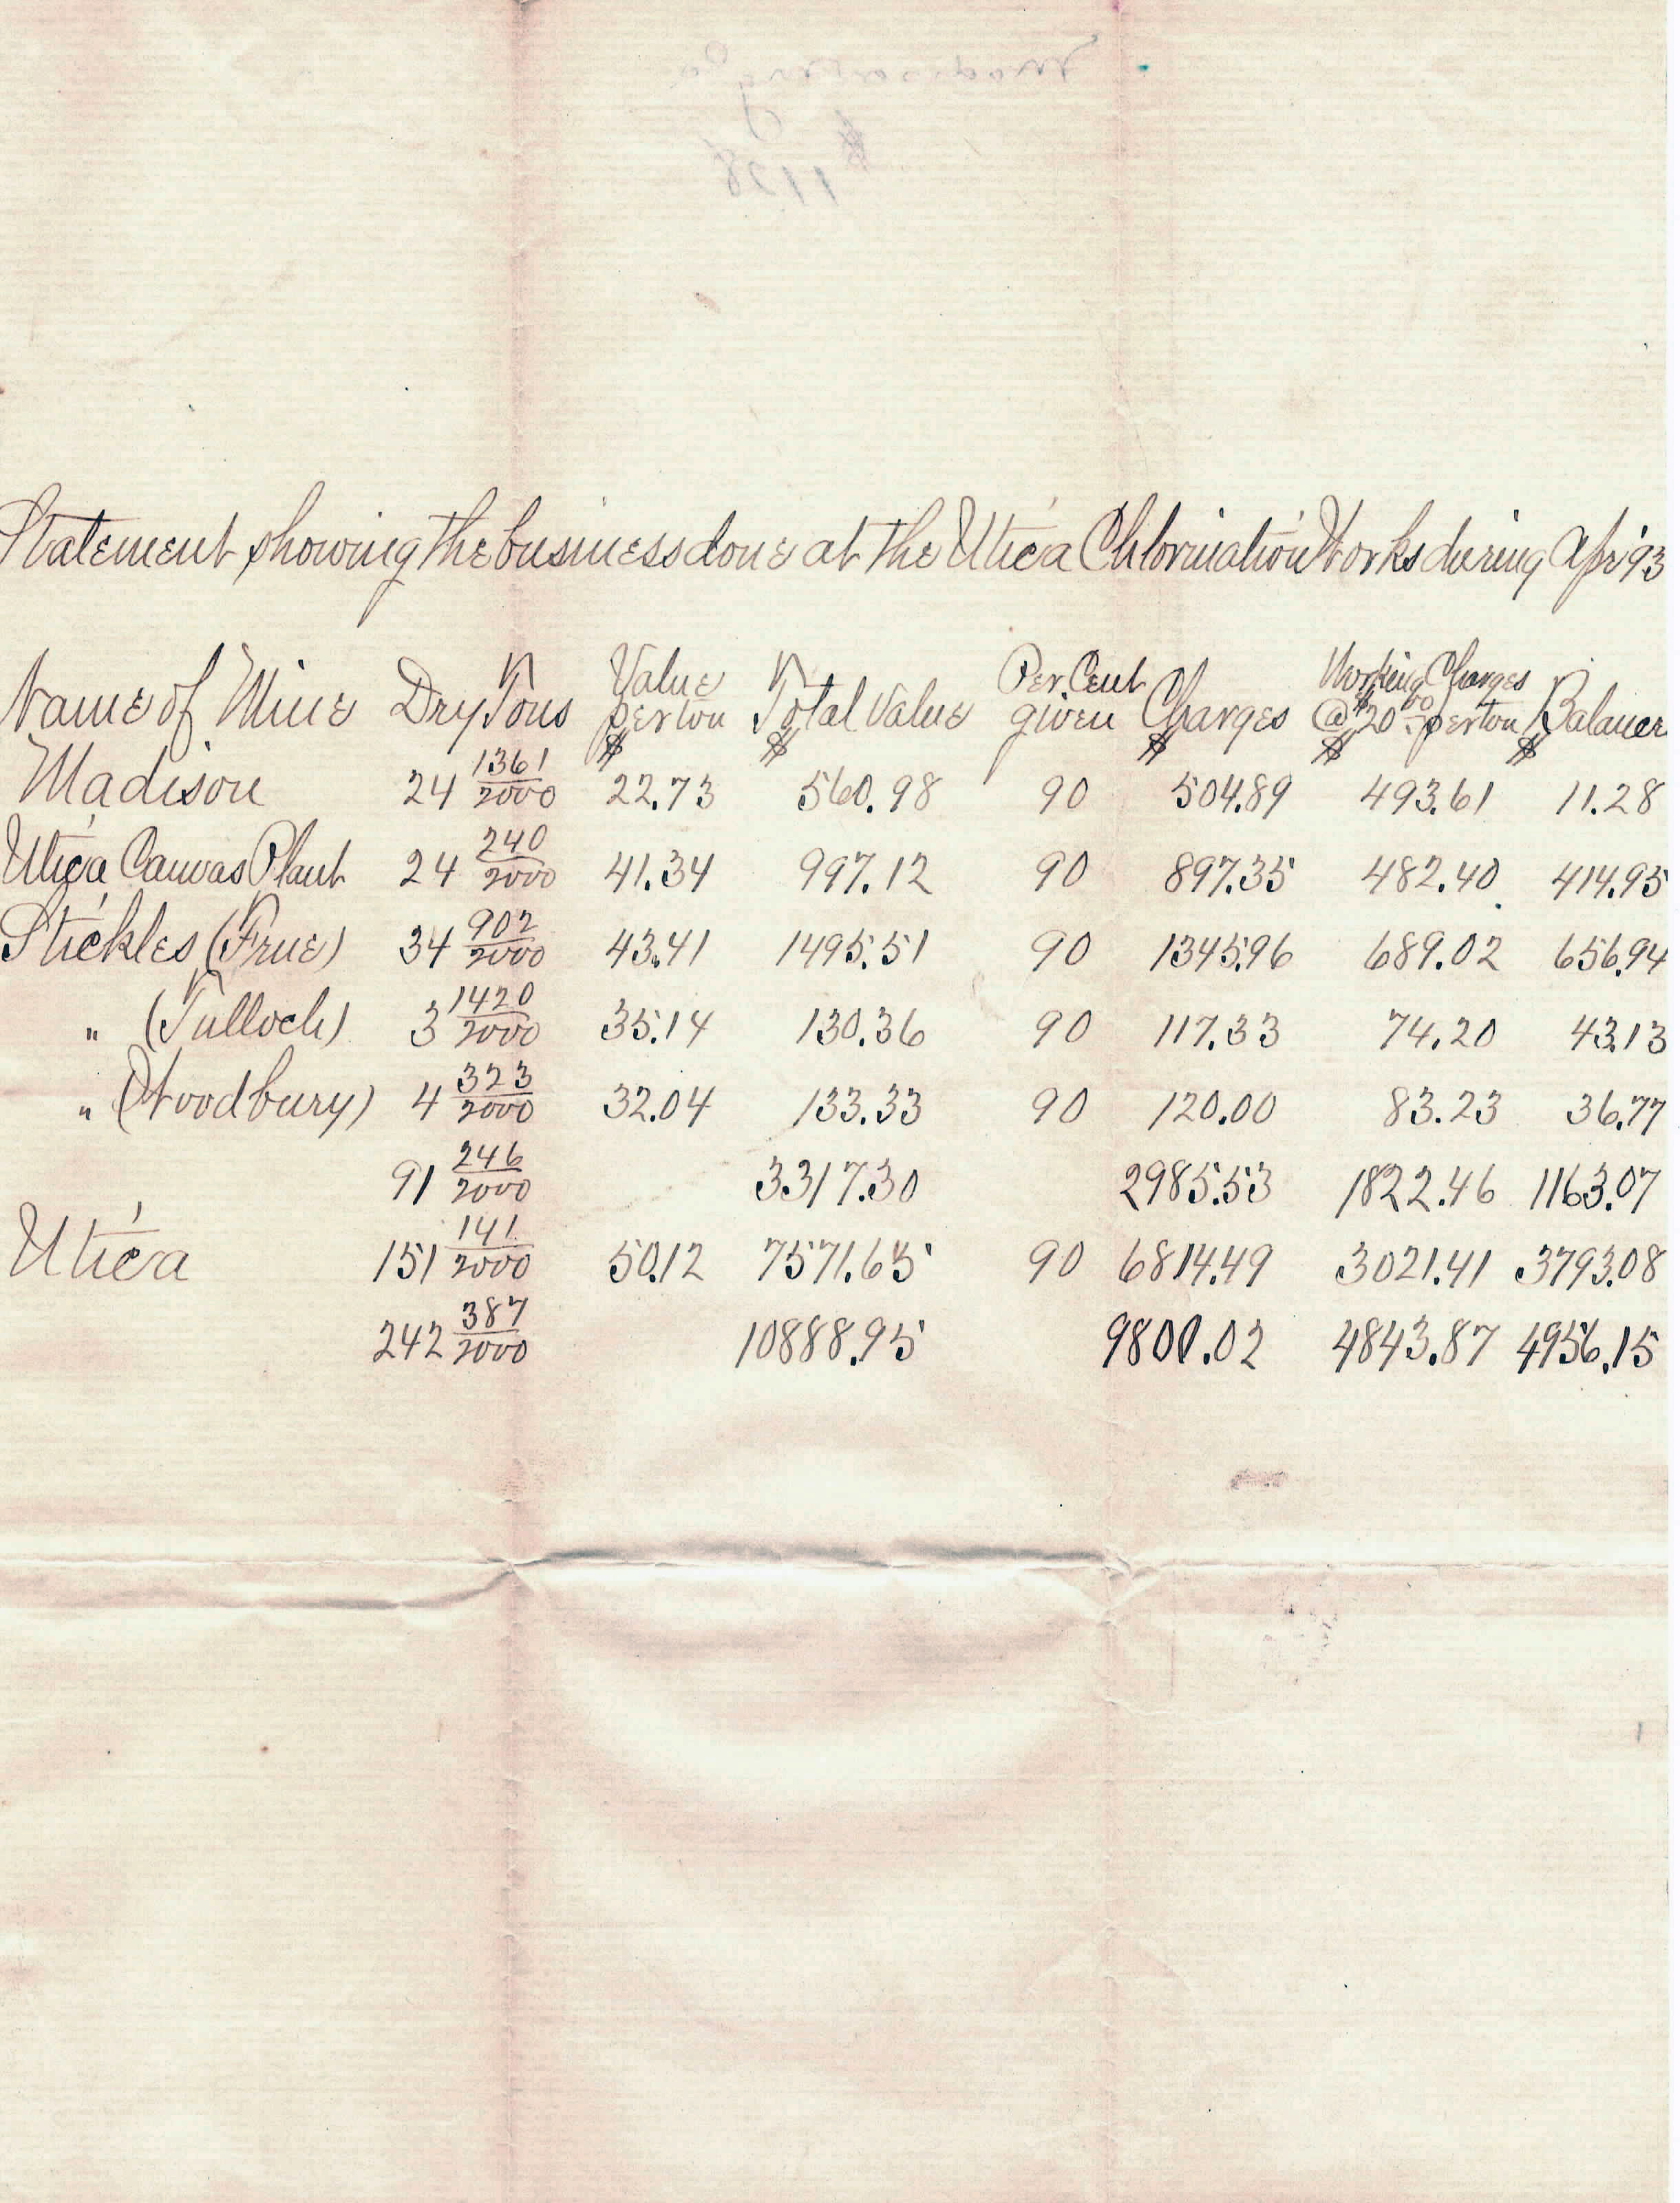 Statement showing the business done at the Utica Chlorination Works during Apr '93
Name of Mine Dry Tons Value per ton $ Total Value $ Per Cent given Charges $ Working Charges @ $20.00 per ton $ Balance $
Madison 24 1361/2000 22.73 560.98 90 504.89 493.61 11.28
Utica Canvas Plant 24 240/2000 41.34 997.12 90 897.35 482.40 414.95
Stickles (Frue) 34 902/2000 43.41 1495.51 90 1345.96 689.02 656.94
" (Tulloch) 3 1420/2000 35.14 130.36 90 117.33 74.20 43.13
" (Woodbury) 4 323/2000 32.04 133.33 90 120.00 83.23 36.77
91 246/2000 3317.30 2985.53 1822.46 1163.07
Utica 151 141/2000 50.12 7571.65 90 6814.49 3021.41 3793.08
242 387/2000 10888.95 9800.02 4843.87 4956.15